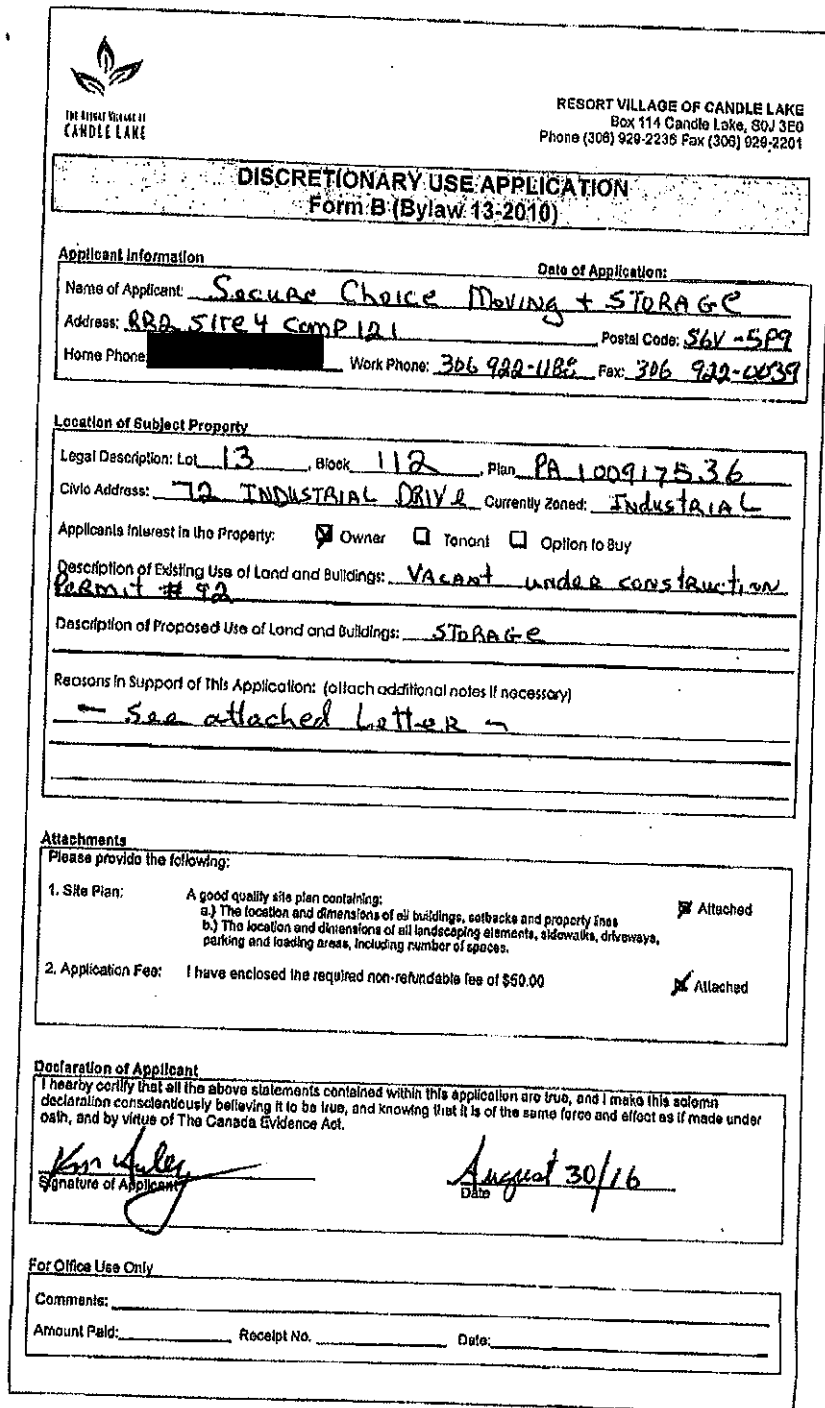 THE RESORT VILLAGE OF
CANDLE LAKE
RESORT VILLAGE OF CANDLE LAKE
Box 114 Candle Lake, S0J 3E0
Phone (306) 929-2236 Fax (306) 929-2201
DISCRETIONARY USE APPLICATION
Form B (Bylaw 13-2010)
Applicant Information
Date of Application:
Name of Applicant: Secure Choice Moving + STORAGE
Address: RR2 SITE 4 COMP 121 Postal Code: S6V-5P9
Home Phone: Work Phone: 306 922-1188 Fax: 306 922-0039
Location of Subject Property
Legal Description: Lot 13, Block 112, Plan PA 100917536
Civic Address: 72 INDUSTRIAL DRIVE Currently Zoned: INDUSTRIAL
Applicants Interest in the Property: Owner Tenant Option to Buy
Description of Existing Use of Land and Buildings: VACANT under construction
Permit # 92
Description of Proposed Use of Land and Buildings: STORAGE
Reasons in Support of This Application: (attach additional notes if necessary)
- See attached Letter -
Attachments
Please provide the following:
1. Site Plan: A good quality site plan containing:
a.) The location and dimensions of all buildings, setbacks and property lines
Attached
b.) The location and dimensions of all landscaping elements, sidewalks, driveways,
parking and loading areas, including number of spaces.
2. Application Fee: I have enclosed the required non-refundable fee of $50.00 Attached
Declaration of Applicant
I hearby certify that all the above statements contained within this application are true, and I make this solemn
declaration conscientiously believing it to be true, and knowing that it is of the same force and effect as if made under
oath, and by virtue of The Canada Evidence Act.
August 30/16
Signature of Applicant Date
For Office Use Only
Comments:
Amount Paid: Receipt No. Date: